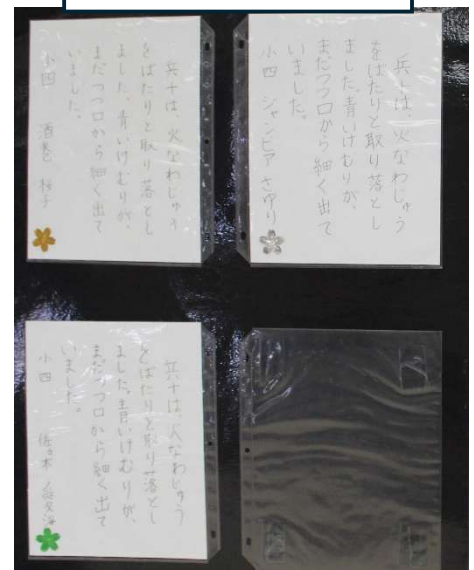 兵十は、火なわじゅう
をばたりと取り落とし
ました。青いけむりが、
まだつつ口から細く出て
いました。
小四 ジャンピア さゆり
兵十は、火なわじゅう
をばたりと取り落とし
ました。青いけむりが、
まだつつ口から細く出て
いました。
小四
兵十は、火なわじゅう
をばたりと取り落とし
ました。青いけむりが、
まだつつ口から細く出て
いました。
小四 佐々木